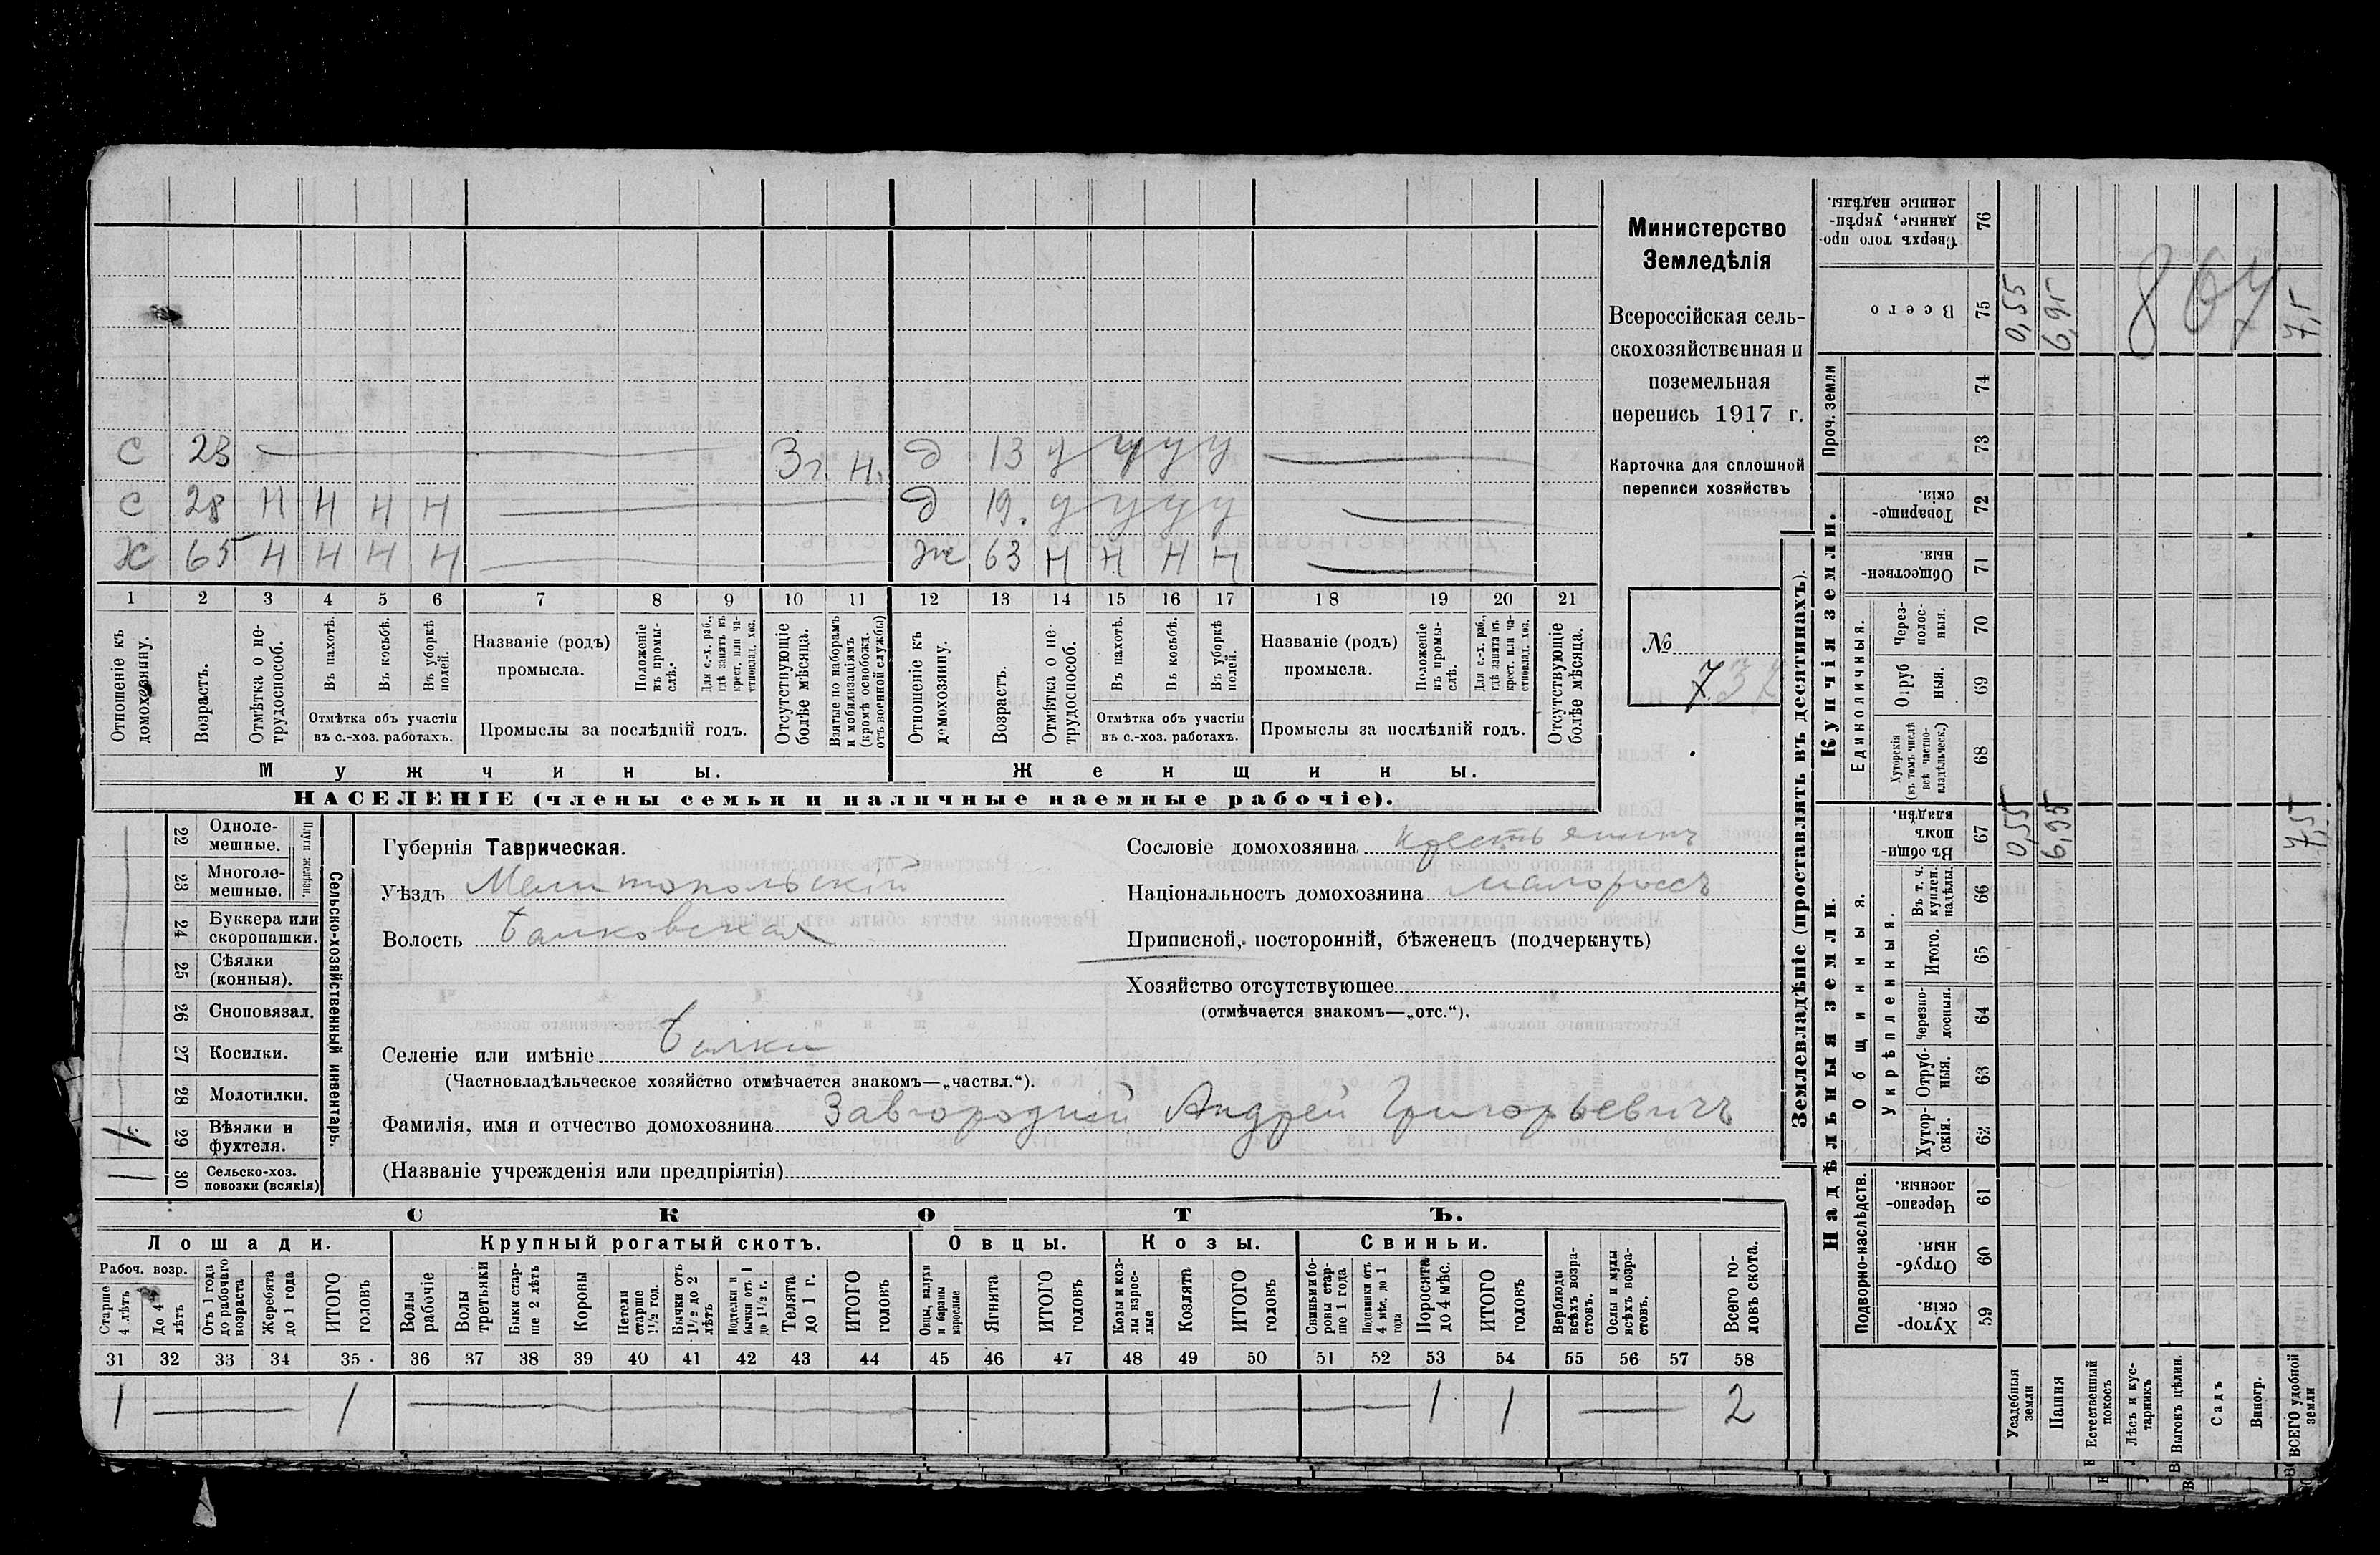 С 23 — 3 г. н. д 13 у у у у —
С 28 Н Н Н Н — д 19. у у у у —
Х 65 Н Н Н Н — ж 63 Н Н Н Н —
1 2 3 4 5 6 7 8 9 10 11 12 13 14 15 16 17 18 19 20 21
Отношеніе къ домохозяину.
Возрастъ.
Отмѣтка о не-
трудоспособ.
Въ пахотѣ.
Въ косьбѣ.
Въ уборкѣ полей.
Отмѣтка объ участіи
въ с.-хоз. работахъ.
Названіе (родъ)
промысла.
Положеніе въ промы-
слѣ.
Для с.-х. раб., гдѣ занятъ въ крест. или ча-
стновлад. хоз.
Промыслы за послѣдній годъ.
Отсутствующіе болѣе мѣсяца.
Взятые по наборамъ и мобилизаціямъ (кромѣ освобожд. отъ военной службы)
Отношеніе къ домохозяину.
Возрастъ.
Отмѣтка о не-
трудоспособ.
Въ пахотѣ.
Въ косьбѣ.
Въ уборкѣ полей.
Отмѣтка объ участіи
въ с.-хоз. работахъ.
Названіе (родъ)
промысла.
Положеніе въ промы-
слѣ.
Для с.-х. раб., гдѣ занята въ крест. или ча-
стновлад. хоз.
Промыслы за послѣдній годъ.
Отсутствующіе болѣе мѣсяца.
Мужчины.
Женщины.
НАСЕЛЕНІЕ (члены семьи и наличные наемные рабочіе).
Министерство
Земледѣлія
Всероссійская сель-
скохозяйственная и
поземельная
перепись 1917 г.
Карточка для сплошной
переписи хозяйствъ
№
737
Губернія Таврическая.
Уѣздъ Мелитопольскій
Волость Балковская
Селеніе или имѣніе Балки
(Частновладѣльческое хозяйство отмѣчается знакомъ—„частвл.“).
Фамилія, имя и отчество домохозяина Завгородній Андрей Григорьевичъ
(Названіе учрежденія или предпріятія)
Сословіе домохозяина крестьянинъ
Національность домохозяина малороссъ
Приписной, посторонній, бѣженецъ (подчеркнуть)
Хозяйство отсутствующее
(отмѣчается знакомъ—„отс.“).
Сельско-хозяйственный инвентарь.
Плуги желѣзн.
22 Одноле-
мешные.
23 Многоле-
мешные.
24 Буккера или
скоропашки.
25 Сѣялки
(конныя).
26 Сноповязал.
27 Косилки.
28 Молотилки.
29 Вѣялки и
фухтеля.
1
30 Сельско-хоз.
повозки (всякія)
1
СКОТЪ.
Лошади.
Крупный рогатый скотъ.
Овцы.
Козы.
Свиньи.
Рабоч. возр.
Старше 4 лѣтъ
До 4 лѣтъ
Отъ 1 года до рабочаго возраста
Жеребята до 1 года
ИТОГО головъ
Волы рабочіе
Волы третьяки
Быки стар-
ше 2 лѣтъ
Коровы
Нетели старше 1½ год.
Бычки отъ 1½ до 2 лѣтъ
Подтелки и бычки отъ 1 до 1½ г.
Телята до 1 г.
ИТОГО головъ
Овцы, валухи и бараны взрослые
Ягнята
ИТОГО головъ
Козы и коз-
лы взрос-
лые
Козлята
ИТОГО головъ
Свиньи и бо-
ровы стар-
ше 1 года
Подсвинки отъ 4 мѣс. до 1 года
Поросята до 4 мѣс.
ИТОГО головъ
Верблюды всѣхъ возра-
стовъ.
Ослы и мулы всѣхъ возра-
стовъ.
Всего го-
ловъ скота.
31 32 33 34 35 36 37 38 39 40 41 42 43 44 45 46 47 48 49 50 51 52 53 54 55 56 57 58
1 — 1 — 1 1 — 2
Землевладѣніе (проставлять въ десятинахъ).
Надѣльныя земли.
Купчія земли.
Проч. земли
Подворно-наслѣдств.
Общинныя.
Укрѣпленныя.
Единоличныя.
Хутор-
скія. 59
Отруб-
ныя. 60
Черезпо-
лосныя. 61
Хутор-
скія. 62
Отруб-
ныя. 63
Черезпо-
лосныя. 64
Итого. 65
Въ т. ч. куплен. надѣлы. 66
Въ общи-
номъ владѣн. 67
Хуторскія (въ томъ числѣ всѣ частно-
владѣльческ.) 68
Отруб
ныя. 69
Через-
полос-
ныя. 70
Обществен-
ныя. 71
Товарище-
скія. 72
73
74
Всего 75
Сверхъ того про-
данные, укрѣп-
ленные надѣлы. 76
Усадебныя земли
Пашня
Естественный покосъ
Лѣсъ и кус-
тарникъ
Выгонъ цѣлин.
Садъ
Виногр.
ВСЕГО удобной земли
0,55
6,95
7,5
0,55
6,95
7,5
867